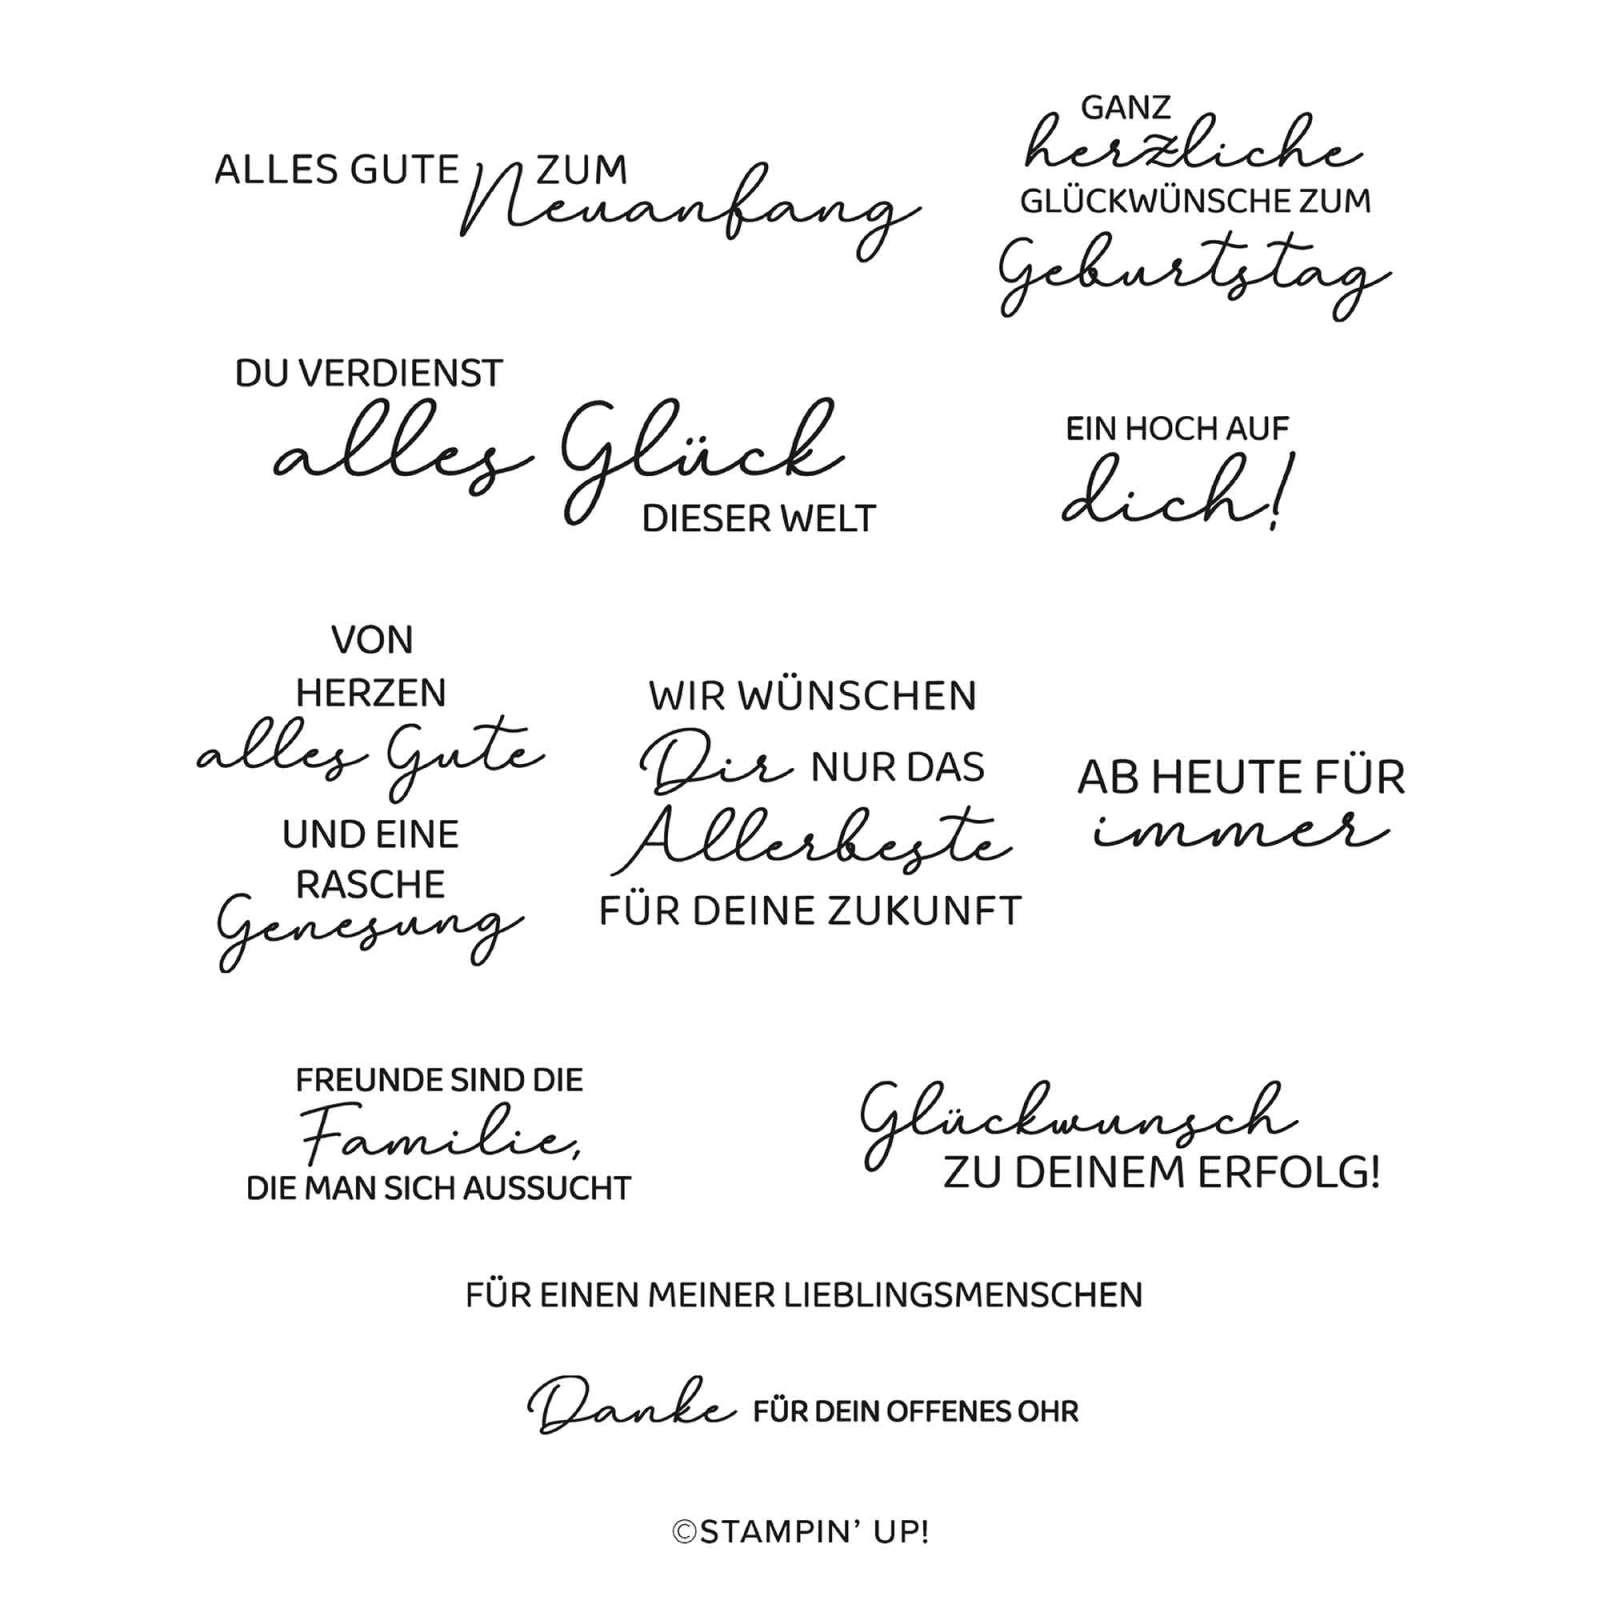 ALLES GUTE ZUM
Neuanfang
GANZ
herzliche
GLÜCKWÜNSCHE ZUM
Geburtstag
DU VERDIENST
alles Glück
DIESER WELT
EIN HOCH AUF
dich!
VON
HERZEN
alles Gute
UND EINE
RASCHE
Genesung
WIR WÜNSCHEN
Dir NUR DAS
Allerbeste
FÜR DEINE ZUKUNFT
AB HEUTE FÜR
immer
FREUNDE SIND DIE
Familie,
DIE MAN SICH AUSSUCHT
Glückwunsch
ZU DEINEM ERFOLG!
FÜR EINEN MEINER LIEBLINGSMENSCHEN
Danke FÜR DEIN OFFENES OHR
©STAMPIN’ UP!